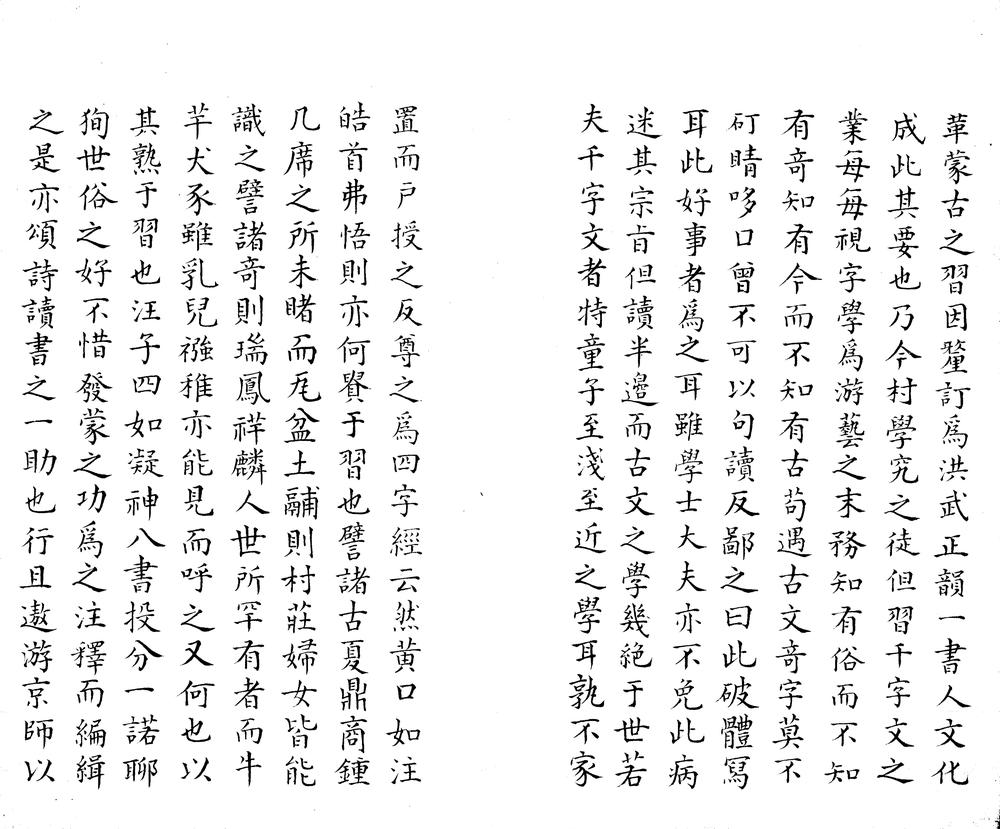 革蒙古之習因釐訂爲洪武正韻一書人文化
成此其要也乃今村學究之徒但習千字文之
業每每視字學爲游藝之末務知有俗而不知
有奇知有今而不知有古茍遇古文奇字莫不
矴睛哆口曾不可以句讀反鄙之曰此破體冩
耳此好事者爲之耳雖學士大夫亦不免此病
迷其宗旨但讀半邉而古文之學幾絕于世若
夫千字文者特童子至淺至近之學耳孰不家
置而戸授之反尊之爲四字經云然黃口如注
皓首弗悟則亦何貴于習也譬諸古夏鼎商鍾
几席之所未睹而瓦盆土鬴則村莊婦女皆能
識之譬諸奇則瑞鳳祥麟人世所罕有者而牛
羊犬豕雖乳兒襁稚亦能見而呼之又何也以
其熟于習也汪子四如凝神八書投分一諾聊
狥世俗之好不惜發蒙之功爲之注釋而編緝
之是亦頌詩讀書之一助也行且遨游京師以